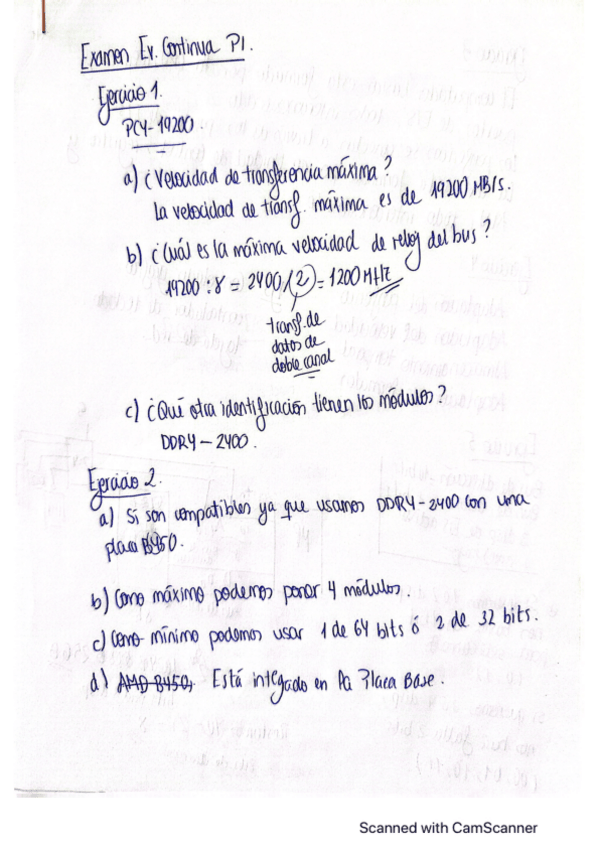 Examen Ev. Continua P1.
Ejercicio 1.
PC4-19200.
a) ¿Velocidad de transferencia máxima?
La velocidad de transf. máxima es de 19200 MB/s.
b) ¿Cuál es la máxima velocidad de reloj del bus?
19200 : 8 = 2400/(2) = 1200 MHz
transf. de
datos de
doble canal
c) ¿Qué otra identificación tienen los módulos?
DDR4 - 2400.
Ejercicio 2.
a) Si son compatibles ya que usamos DDR4-2400 con una
placa B450.
b) Como máximo podemos poner 4 módulos.
c) Como mínimo podemos usar 1 de 64 bits ó 2 de 32 bits.
d) AMD B450, Está integado en la Placa Base.
Scanned with CamScanner